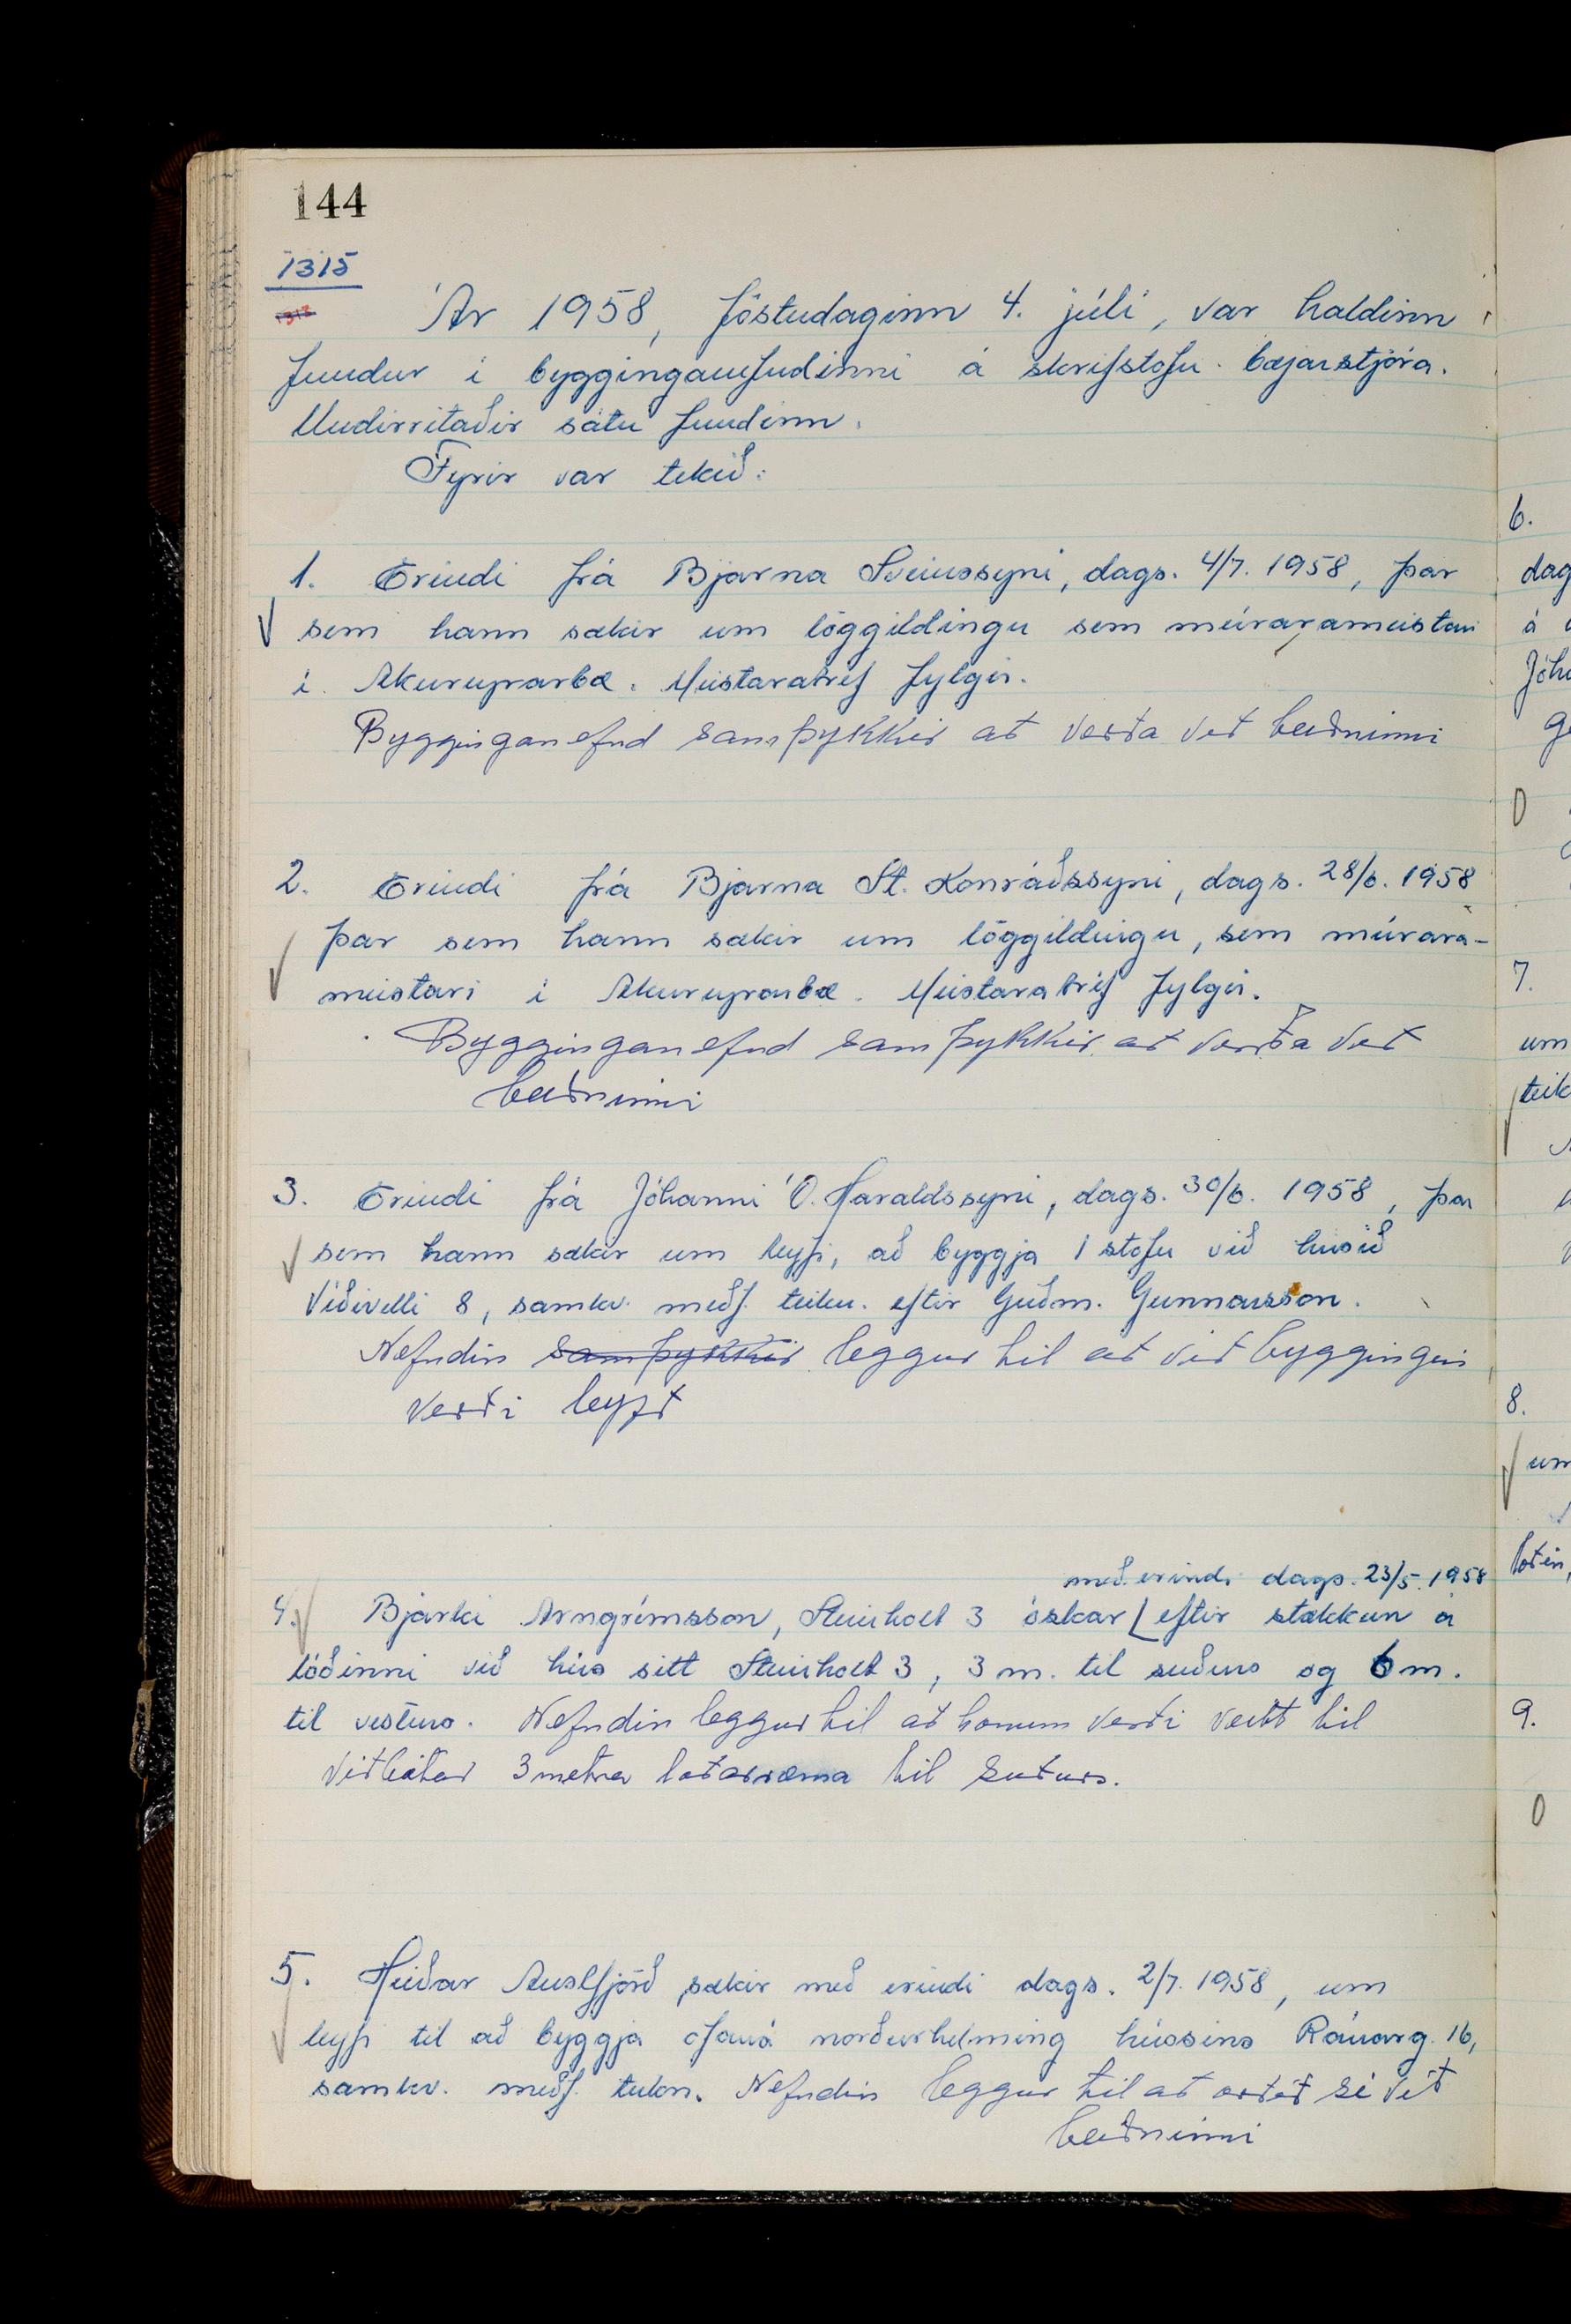 144
1315
Ár 1958, föstudaginn 4. júlí, var haldinn
fundur í bygginganefndinni á skrifstofu bæjarstjóra.
Undirritaðir sátu fundinn.
Fyrir var tekið:
1. Erindi frá Bjarna Sveinssyni, dags. 4/7. 1958, þar
sem hann sækir um löggildingu sem múrarameistari
í Akureyrarbæ. Meistarabréf fylgir.
Bygginganefnd samþykkir að verða við beiðninni
2. Erindi frá Bjarna St. Konráðssyni, dags. 28/6. 1958
þar sem hann sækir um löggildingu, sem múrara-
meistari í Akureyrarbæ. Meistarabréf fylgir.
Bygginganefnd samþykkir að verða við
beiðninni
3. Erindi frá Jóhanni Ó. Haraldssyni, dags. 30/6. 1958, þar
sem hann sækir um leyfi, að byggja 1 stofu við húsið
Víðivelli 8, samkv. meðf. teikn. eftir Guðm. Gunnarsson.
Nefndin samþykkir leggur til að viðbyggingin
verði leyfð
með erindi dags. 23/5. 1958
4. Bjarki Arngrímsson, Steinholt 3 óskar eftir stækkun á
lóðinni við hús sitt Steinholt 3, 3 m. til suðurs og 6 m.
til vesturs. Nefndin leggur til að honum verði veitt til
viðbótar 3 metra lóðarræma til suðurs.
5. Heiðar Austfjörð sækir með erindi dags. 2/7. 1958, um
leyfi til að byggja ofaná norðurhelming hússins Ránarg. 16,
samkv. meðf. teikn. Nefndin leggur til að orðið sé við
beiðninni
6.
dag
á
Jóh
7.
um
teik
8.
um
lóðin,
9.